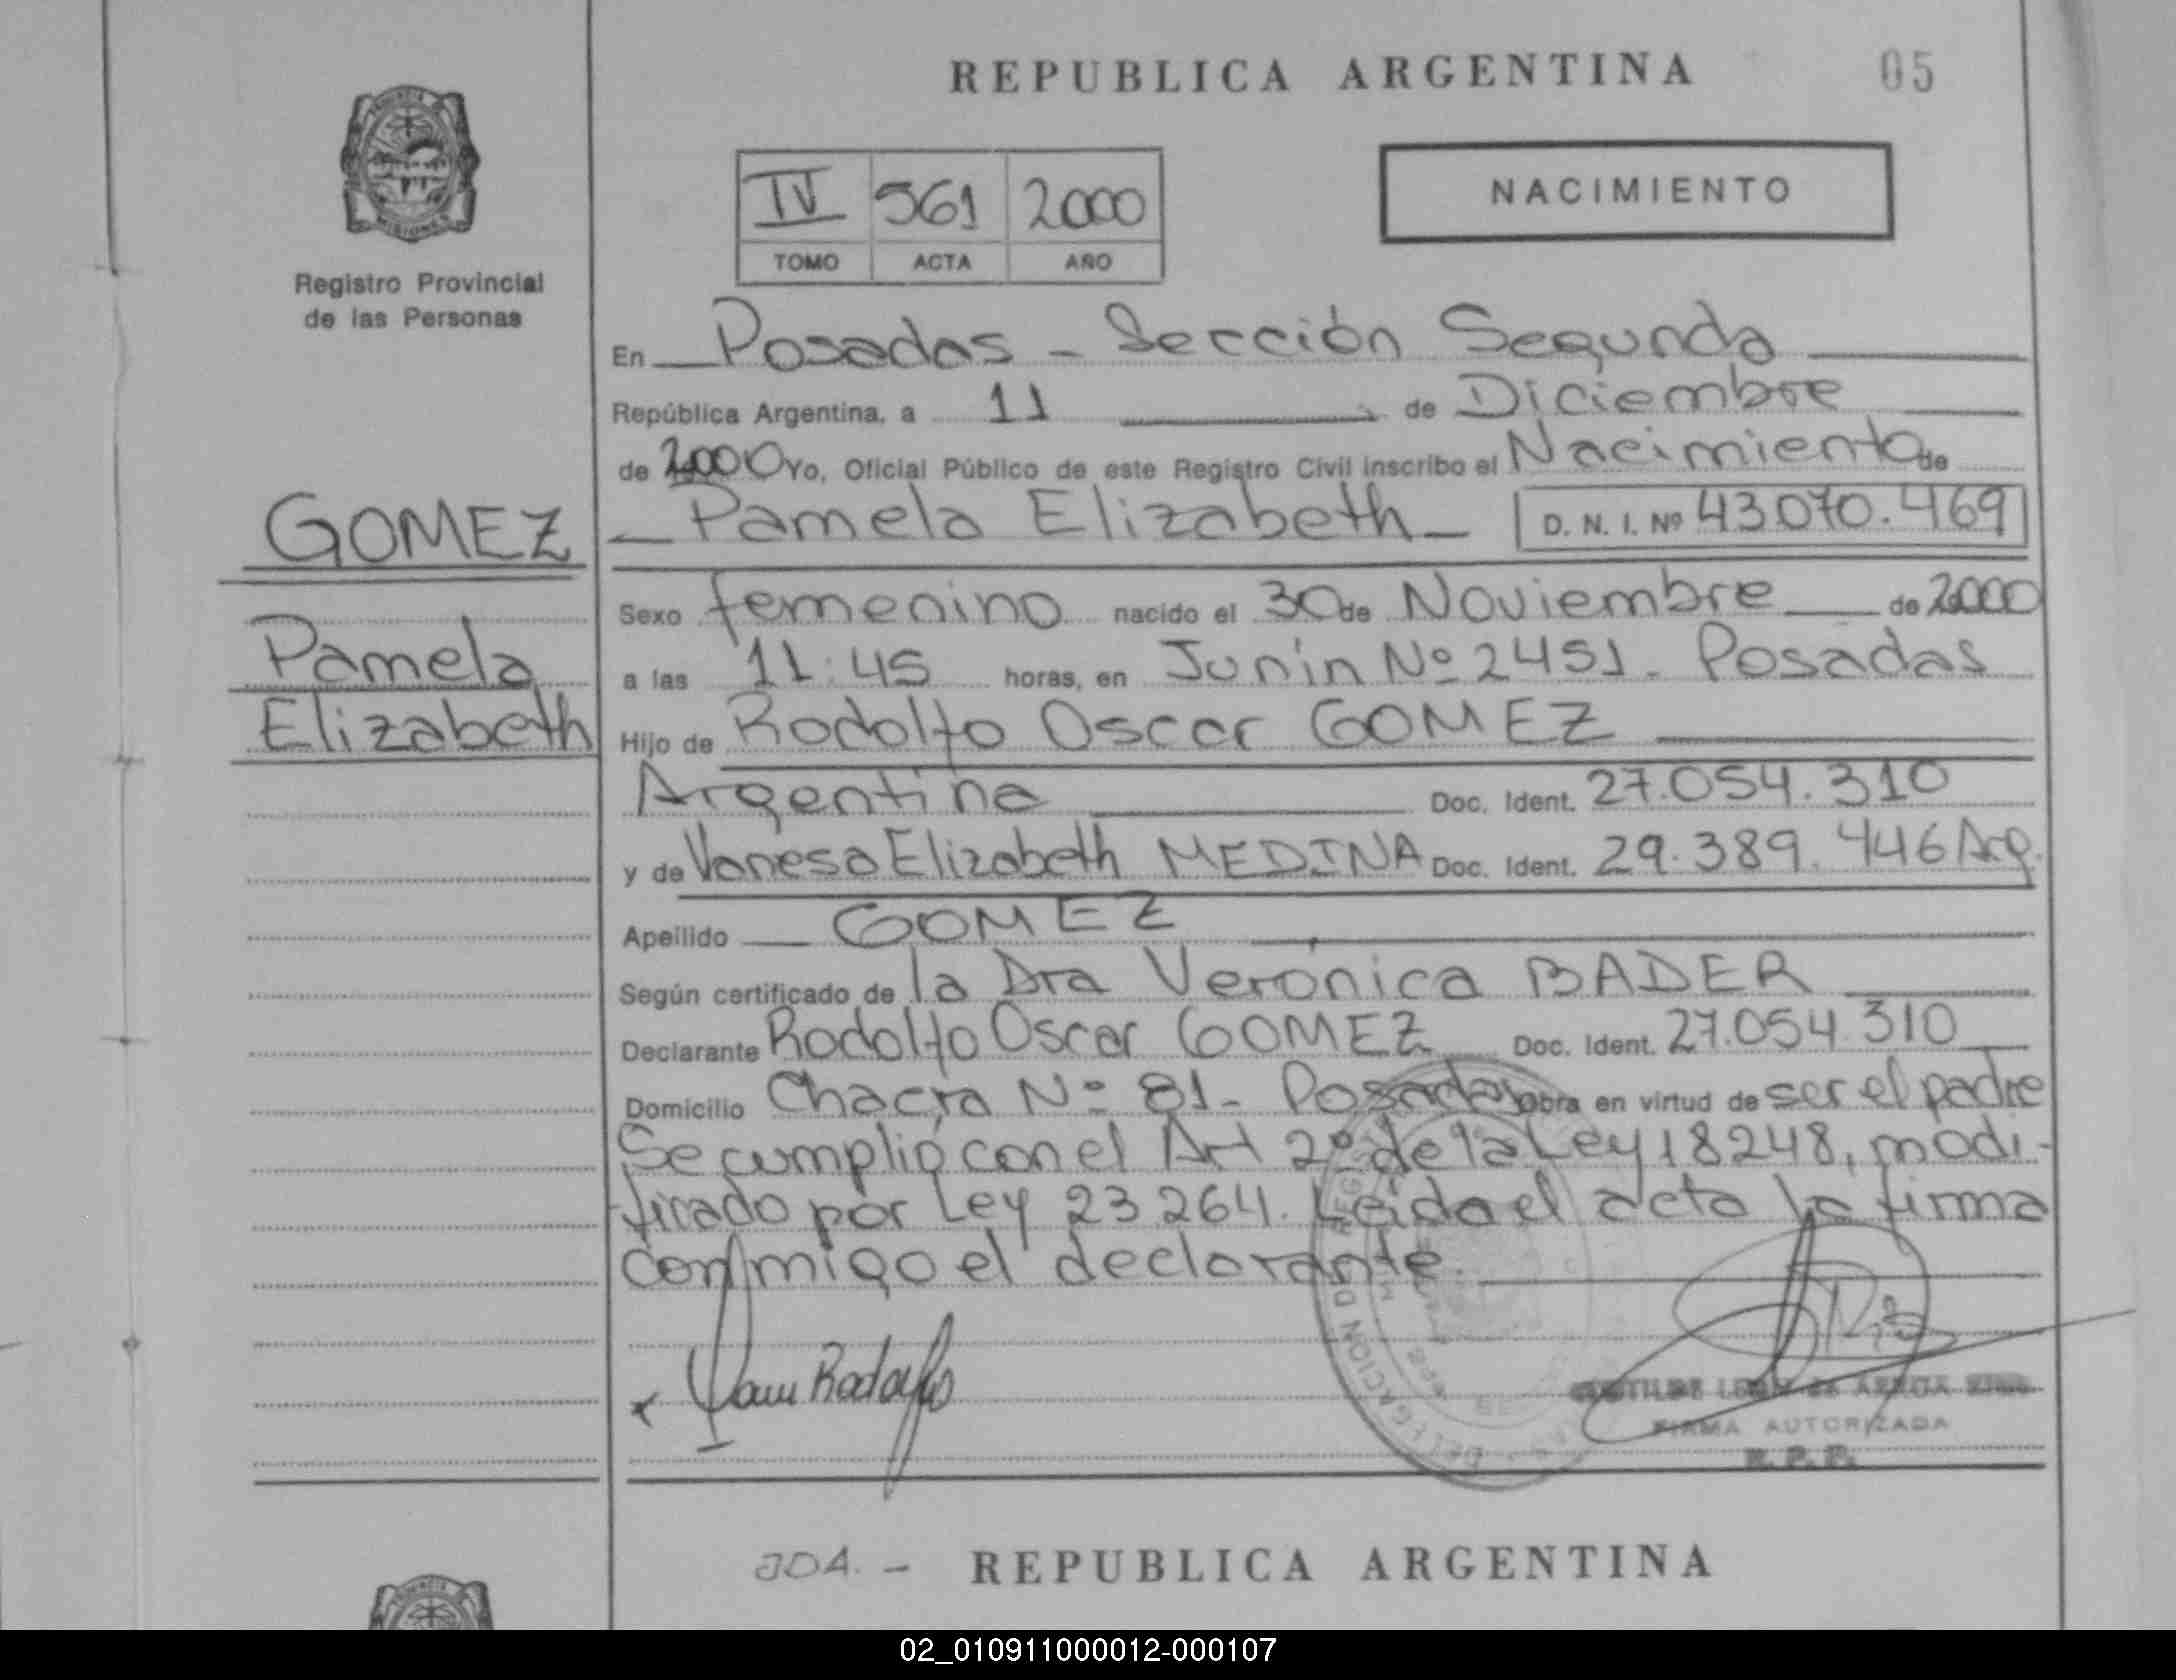 REPUBLICA ARGENTINA 05
PROVINCIA
MISIONES
Registro Provincial
de las Personas
IV 561 2000
TOMO ACTA AÑO
NACIMIENTO
En Posadas - Sección Segunda
República Argentina, a 11 de Diciembre
de 2000 Yo, Oficial Público de este Registro Civil inscribo el Nacimiento de
GOMEZ
Pamela Elizabeth D. N. I. Nº 43.070.469
Sexo femenino nacido el 30 de Noviembre de 2000
Pamela
a las 11:45 horas, en Junín Nº 2451 - Posadas
Elizabeth
Hijo de Rodolfo Oscar GOMEZ
Argentina Doc. Ident. 27.054.310
y de Vanesa Elizabeth MEDINA Doc. Ident. 29.389.446 Arg.
Apellido GOMEZ
Según certificado de la Dra Verónica BADER
Declarante Rodolfo Oscar GOMEZ Doc. Ident. 27.054.310
Domicilio Chacra Nº 81 - Posadas Obra en virtud de ser el padre
Se cumplió con el Art 2º de la Ley 18248, modi-
ficado por Ley 23.264. Leída el acta la firma
conmigo el declarante.
x Rodolfo
DELEGACION DE
FIRMA AUTORIZADA
R. P. P.
JDA. - REPUBLICA ARGENTINA
02_010911000012-000107